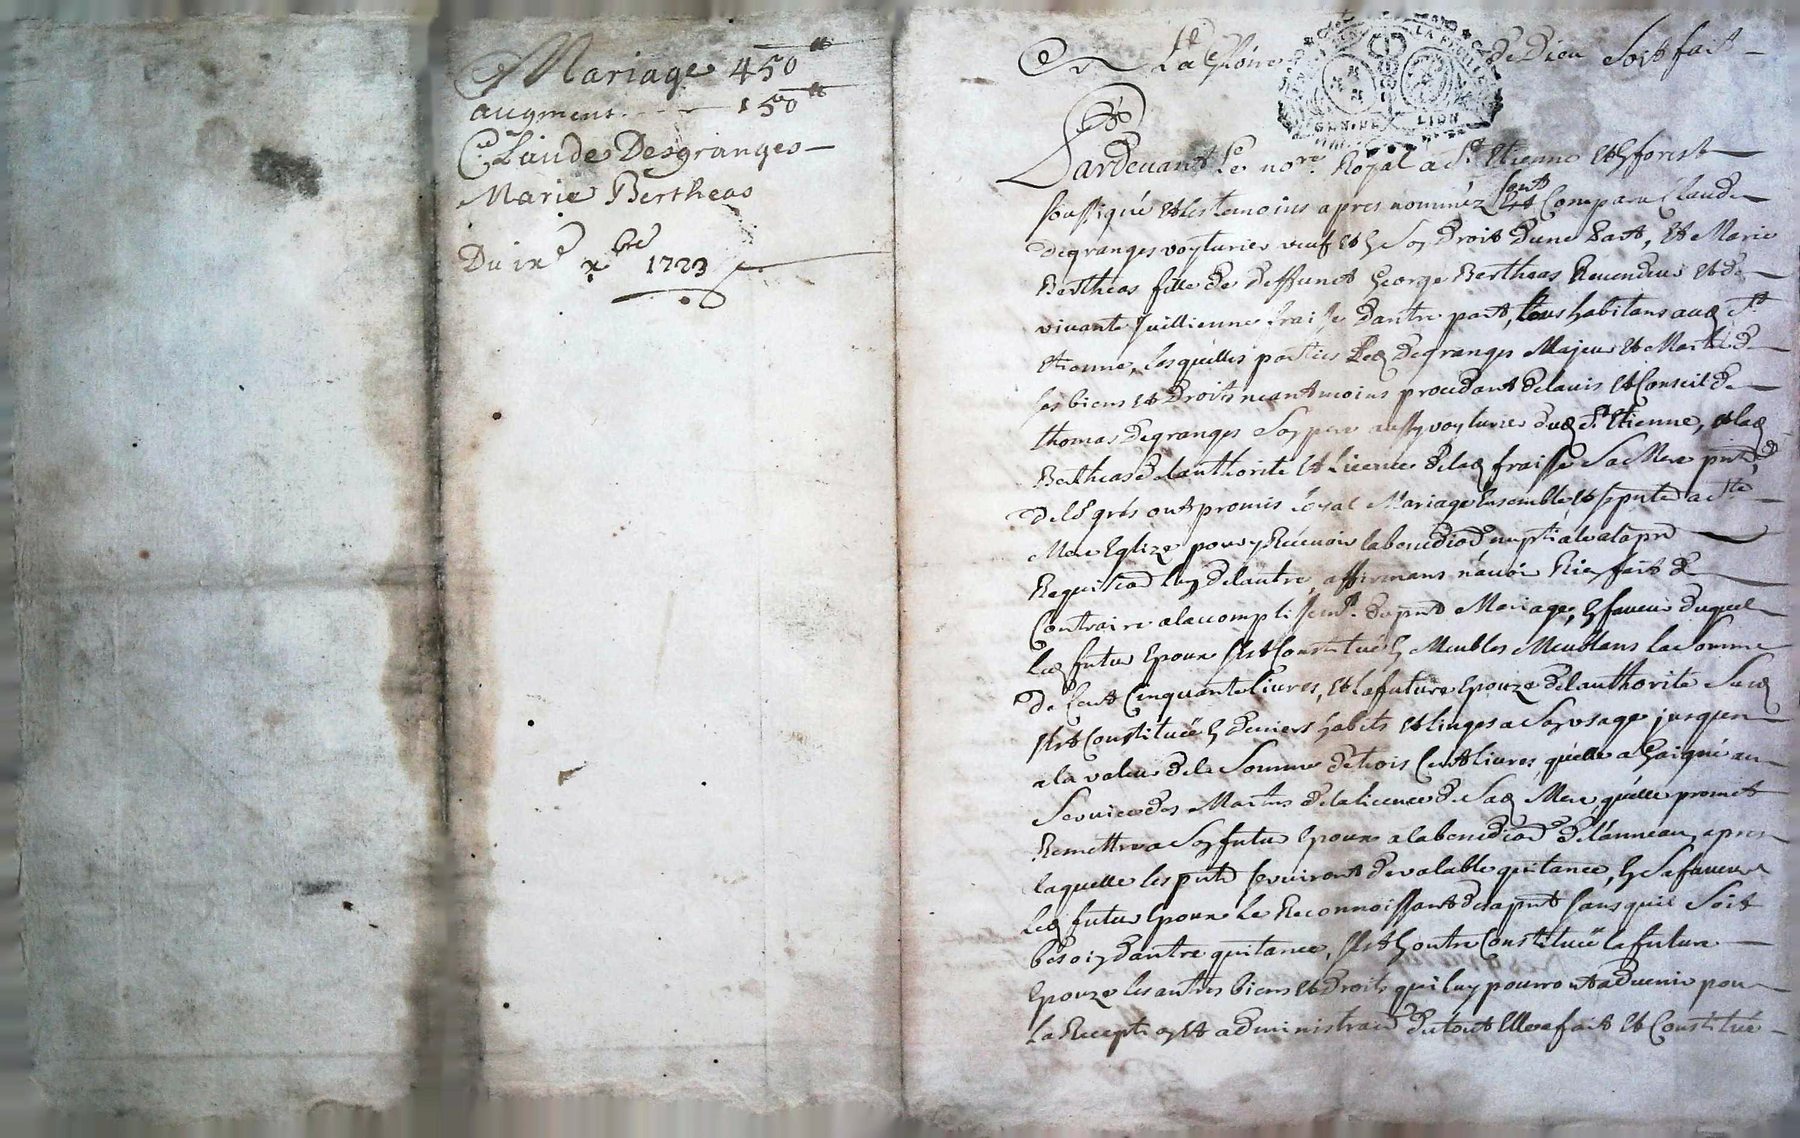 Mariage 450 ₶
augment 150 ₶
Claude Desgranges
Marie Bertheas
Du ixe xbre 1723
A La Gloire de Dieu Soit fait
GEN DE LION
Pardevant Le nore Royal a St Etienne en forest
soussigné et les temoins apres nommez sont Comparu Claude
Degranges voyturier veuf et en Son Droit d'une Part, et Marie
Bertheas fille de deffunct George Bertheas Reuendeur et de
viuante Juillienne fraisse d'autre part, tous habitans aud St
Etienne, Lesquelles parties Led Degranges Majeur et Maitre de
ses biens et Droits neantmoins procedant de lauis et Conseil de
thomas Degranges Son pere aussy voyturier dud St Etienne, et lad
Bertheas de lauthorité et Licence de lad fraisse Sa Mere pnte
de grés ont promis loyal Mariage Ensemble et
Mere Eglize pour y Receuoir la benediōn nuptiale a la pre
Requisiōn lun de lautre, affirmans n'auoir Rien fait de
Contraire a lacomplissemt du pnt Mariage, en faueur duquel
Led futur Epoux s'est Constitué en Meubles Meublans la Somme
de Cent Cinquante liures, et la future Epouze de lauthorité Susd
s'est Constituée en deniers habits et linges a Son vsage jusques
a la valeur de la Somme de trois Cent liures, quelle a Gaigné au
Seruice des Maitres de la licence de Sad Mere, quelle promet
Remettre a Son futur Epoux a la benediōn de l'anneau, apres
laquelle les pntes seruiront de valable quitance, en Sa faueur
Led futur Epoux Le Reconnoissant des a pnt sans quil Soit
besoin d'autre quitance, s'est en outre Constituée la future
Epouze les autres biens et Droits qui luy pourront aduenir pour
la Reception et administraōn du tout Elle a fait et Constitué